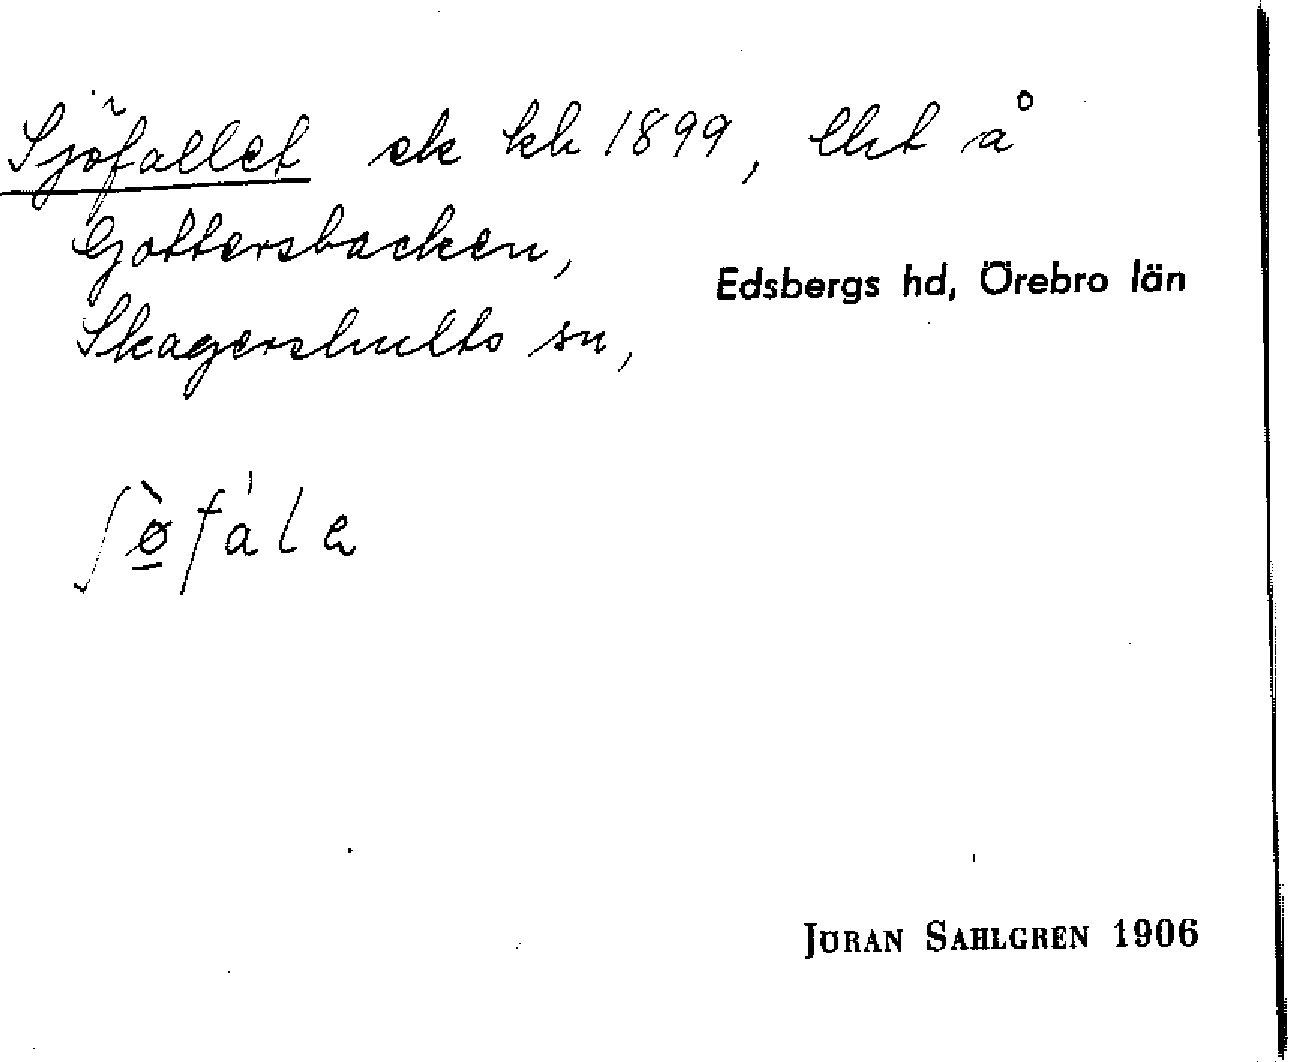 Sjöfallet ek kh 1899, lht å
Gottersbacken,
Skagershults sn,
Edsbergs hd, Örebro län
ʃø̲̀fála
JÖRAN SAHLGREN 1906